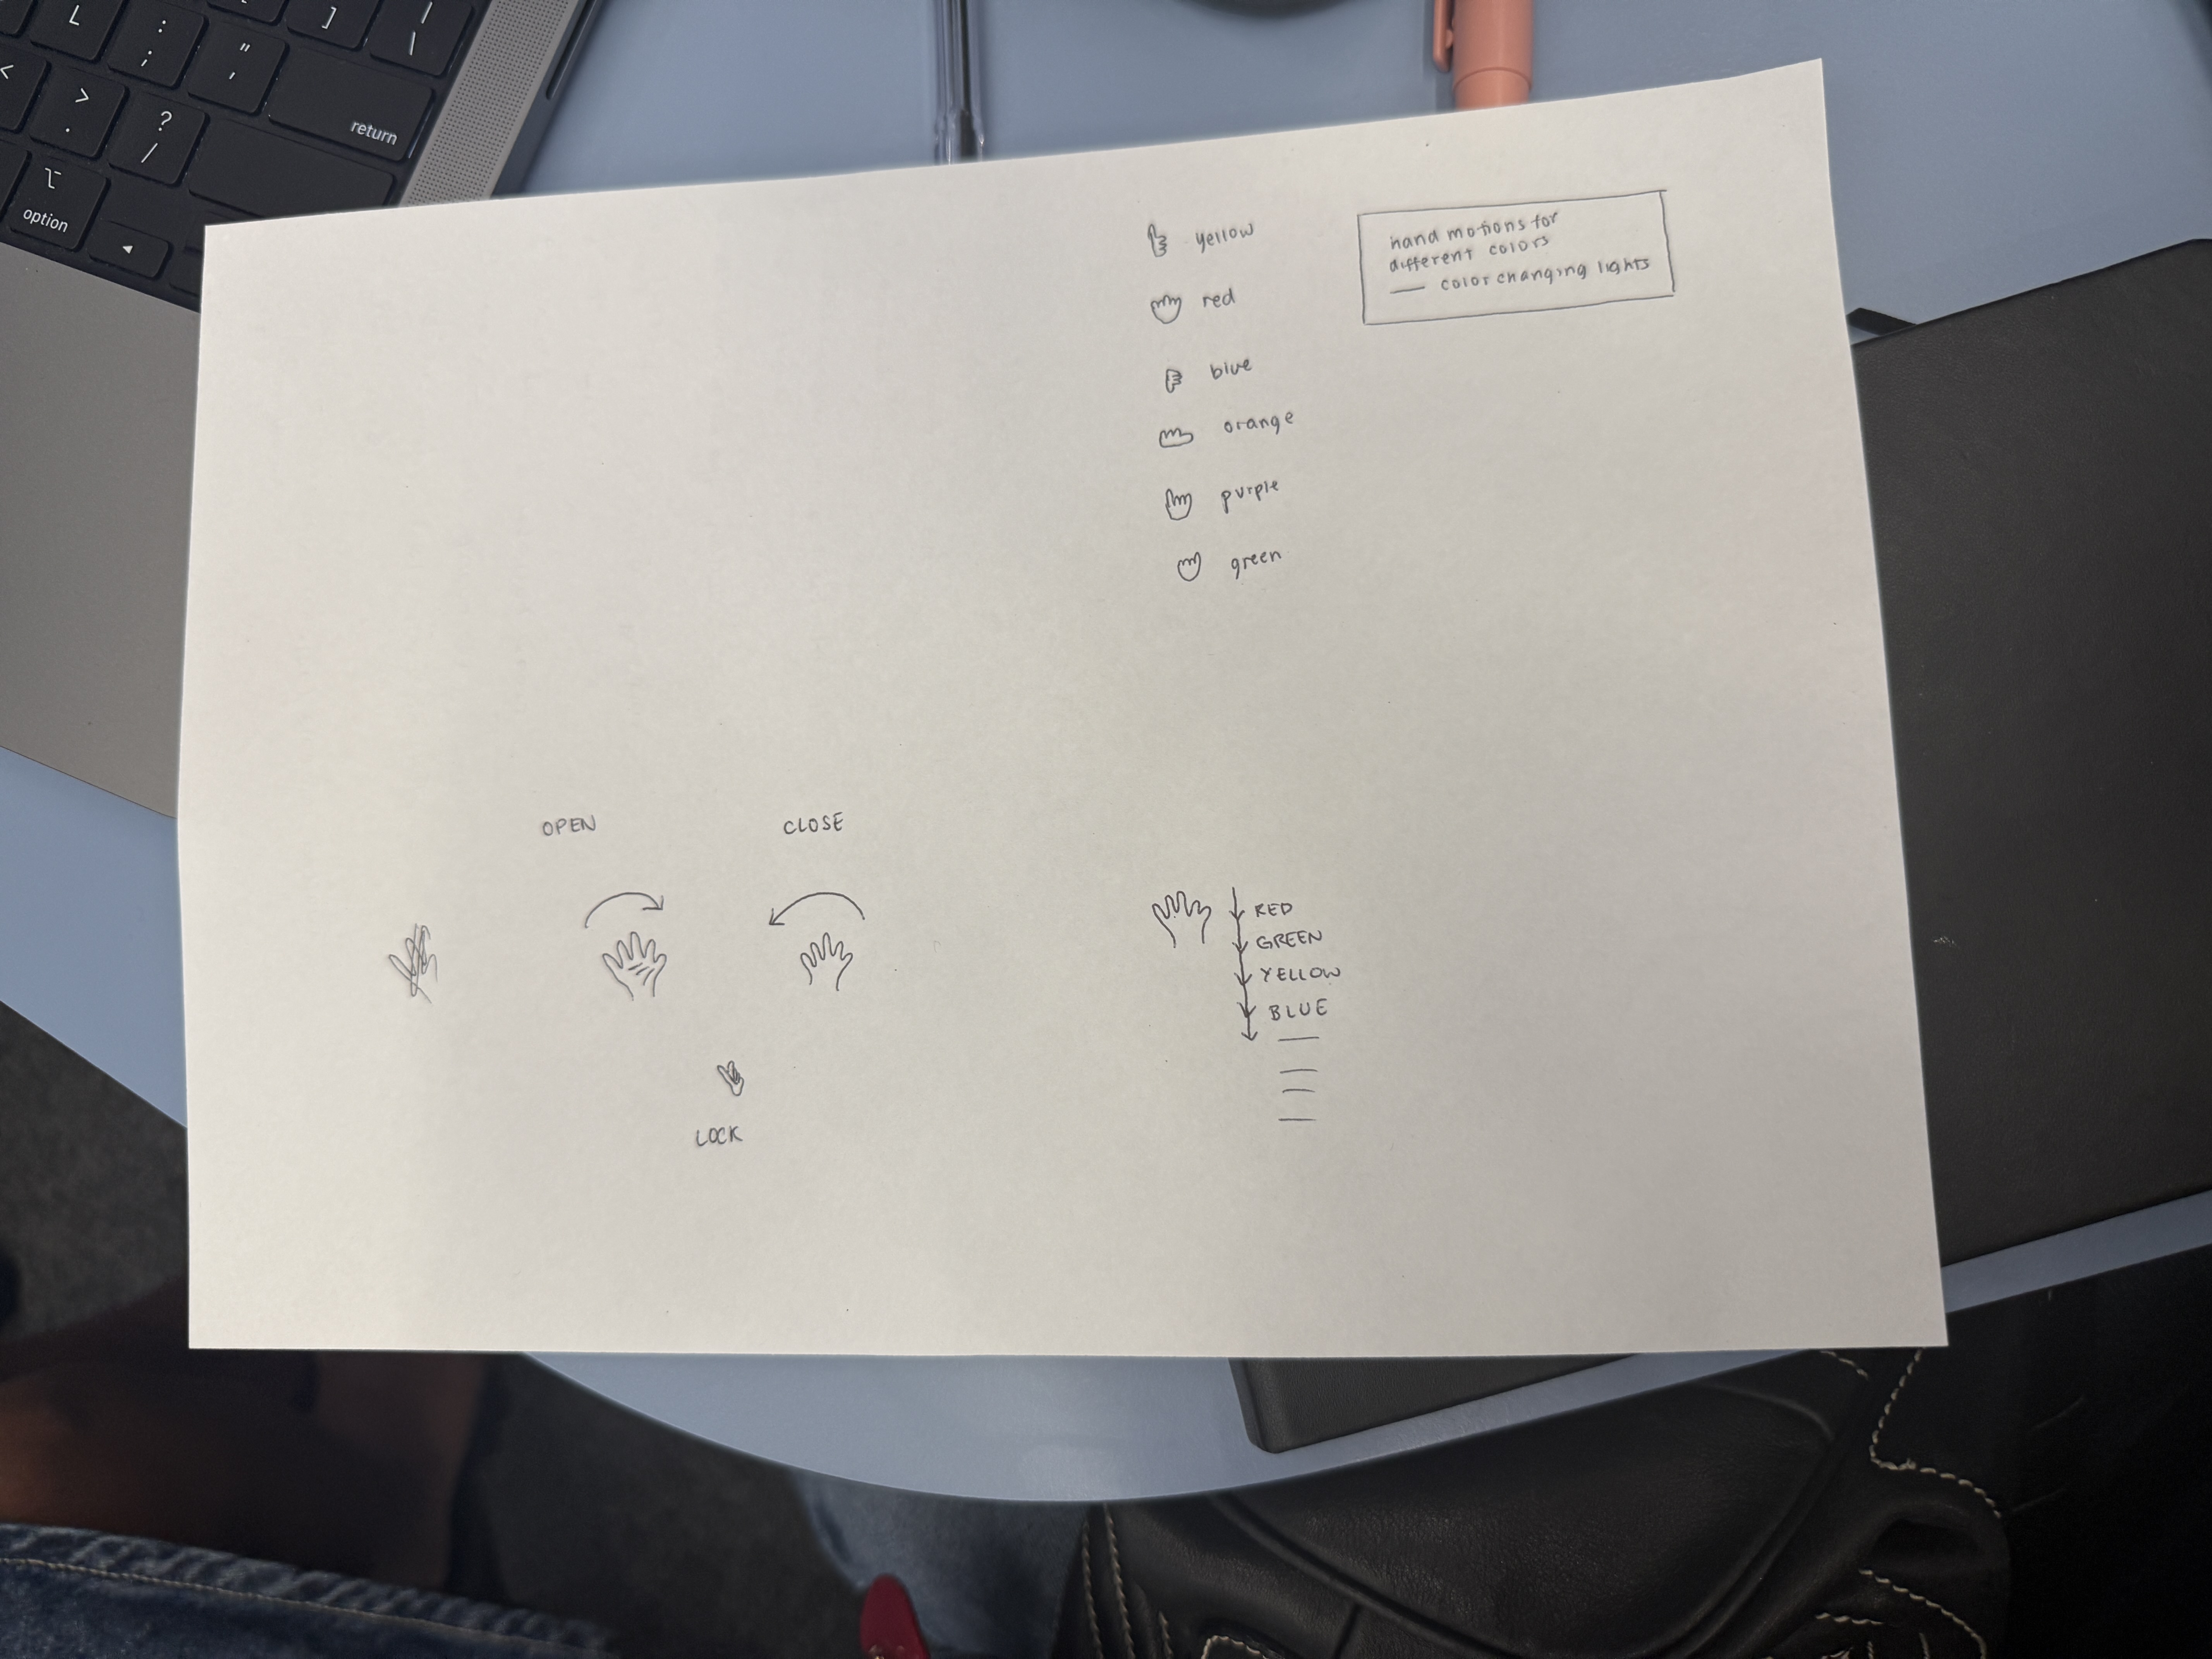 L
:
;
"
'
]
|
\
<
>
.
?
/
return
option
yellow
red
blue
orange
purple
green
hand motions for
different colors
— color changing lights
OPEN
CLOSE
LOCK
RED
GREEN
YELLOW
BLUE